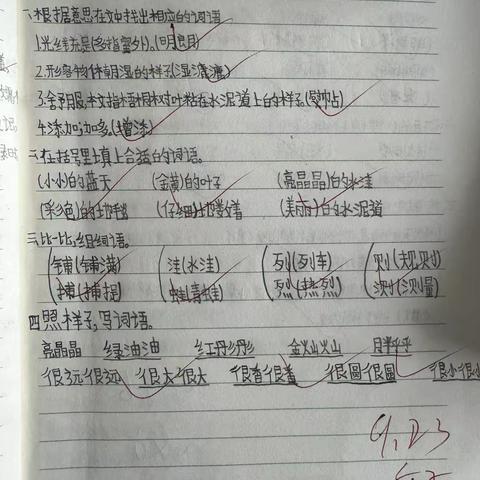 一、根据意思在文中找出相应的词语
1.光线充足(多指室外)。(明朗)
2.形容物体潮湿的样子(湿漉漉)
3.舒服,本文指梧桐树叶粘在水泥道上的样子(熨帖)
4.添加,加多(增添)
二、在括号里填上合适的词语。
(小小)的蓝天 (金黄)的叶子 (亮晶晶)的水洼
(彩色)的地毯 (仔细)地数着 (美丽)的水泥道
三、比一比,组词语。
铺(铺满) 洼(水洼) 列(列车) 则(规则)
捕(捕捉) 蛙(青蛙) 烈(热烈) 测(测量)
四、照样子,写词语。
亮晶晶 绿油油 红丹丹 金灿灿 月
很远很远 很大很大 很香很香 很圆很圆 很小很小
9.23